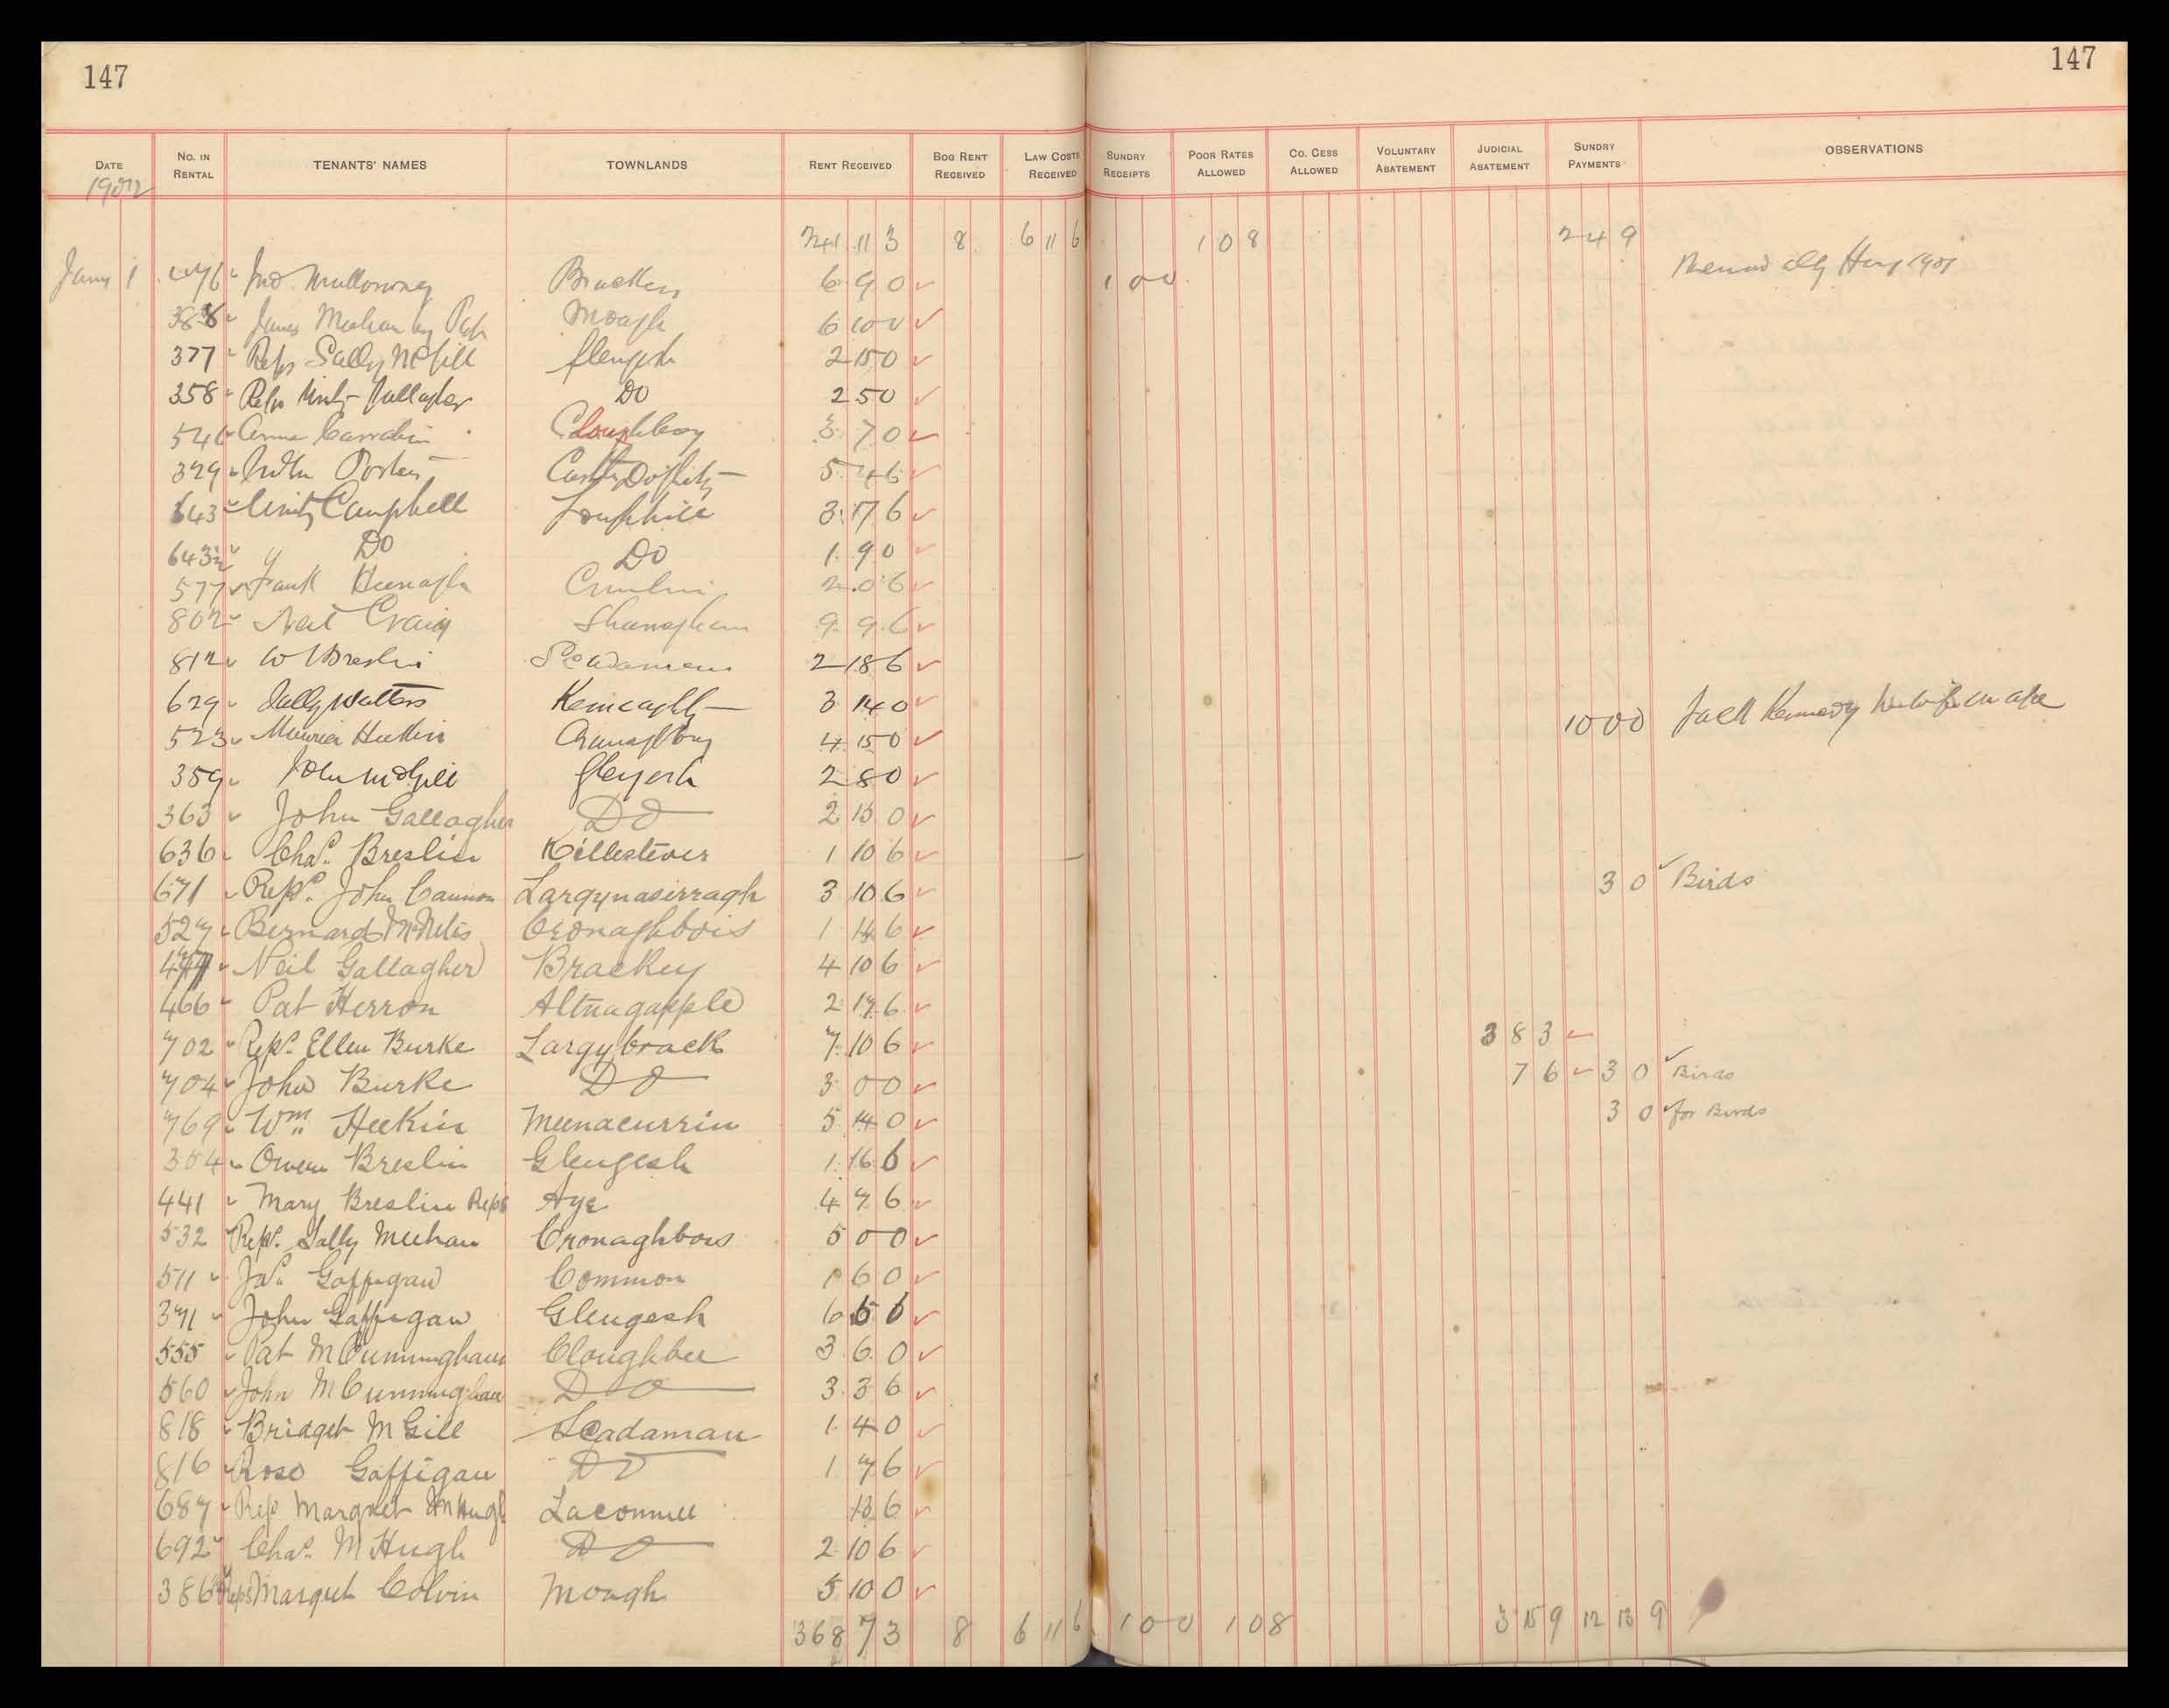 147 147
DATE No. IN RENTAL TENANTS' NAMES TOWNLANDS RENT RECEIVED BOG RENT RECEIVED LAW COSTS RECEIVED SUNDRY RECEIPTS POOR RATES ALLOWED CO. CESS ALLOWED VOLUNTARY ABATEMENT JUDICIAL ABATEMENT SUNDRY PAYMENTS OBSERVATIONS
1902
11 3 8 6 11 6 1 0 8 2 4 9
Jany 1 Mulloway 6 9 0 1 0 0
388 James Meehan by Pat Mough 6 10 0
377 Reps Sally McGill Glengesh 2 15 0
358 Reps Unity Gallagher Do 2 5 0
546 Cloughboy 3 7 0
329 Porter 5 4 6
643 Unity Campbell Loughhill 3 17 6
643½ Do Do 1 9 0
577 Frank Heenagh Crumlin 2 0 6
802 Neil Craig Shanaghan 9 9 6
812 W Breslin Scadaman 2 18 6
629 Sally Watters 3 14 0
523 Maurice Heekin 4 15 0 10 0 0 Jack Kennedy
359 John McGill Glengesh 2 8 0
363 John Gallagher DO 2 15 0
636 Chas. Breslin Killestever 1 10 6
671 Reps. John Cannon Largynasirragh 3 10 6 3 0 Birds
527 Bernard McNelis Cronaghbois 1 14 6
477 Neil Gallagher Brackey 4 10 6
466 Pat Herron Altnagapple 2 17 6
702 Reps. Ellen Burke Largybrack 7 10 6 3 8 3
704 John Burke DO 3 0 0 7 6 3 0 Birds
769 Wm Heekin Meenacurrin 5 14 0 3 0 for Birds
354 Owen Breslin Glengesh 1 16 6
441 Mary Breslin Reps Aye 4 7 6
532 Reps. Sally Meehan Cronaghbois 5 0 0
511 Jas. Gaffigan Common 1 6 0
371 John Gaffigan Glengesh 6 6 6
555 Pat McCunningham Cloughbee 3 6 0
560 John McCunningham DO 3 3 6
818 Bridget McGill Scadaman 1 4 0
816 Rose Gaffigan DO 1 7 6
687 Rep Margret McHugh Laconnell 13 6
692 Chas. McHugh DO 2 10 6
386 Reps Margret Colvin Mough 5 10 0
368 7 3 8 6 11 6 1 0 0 1 0 8 3 15 9 12 13 9